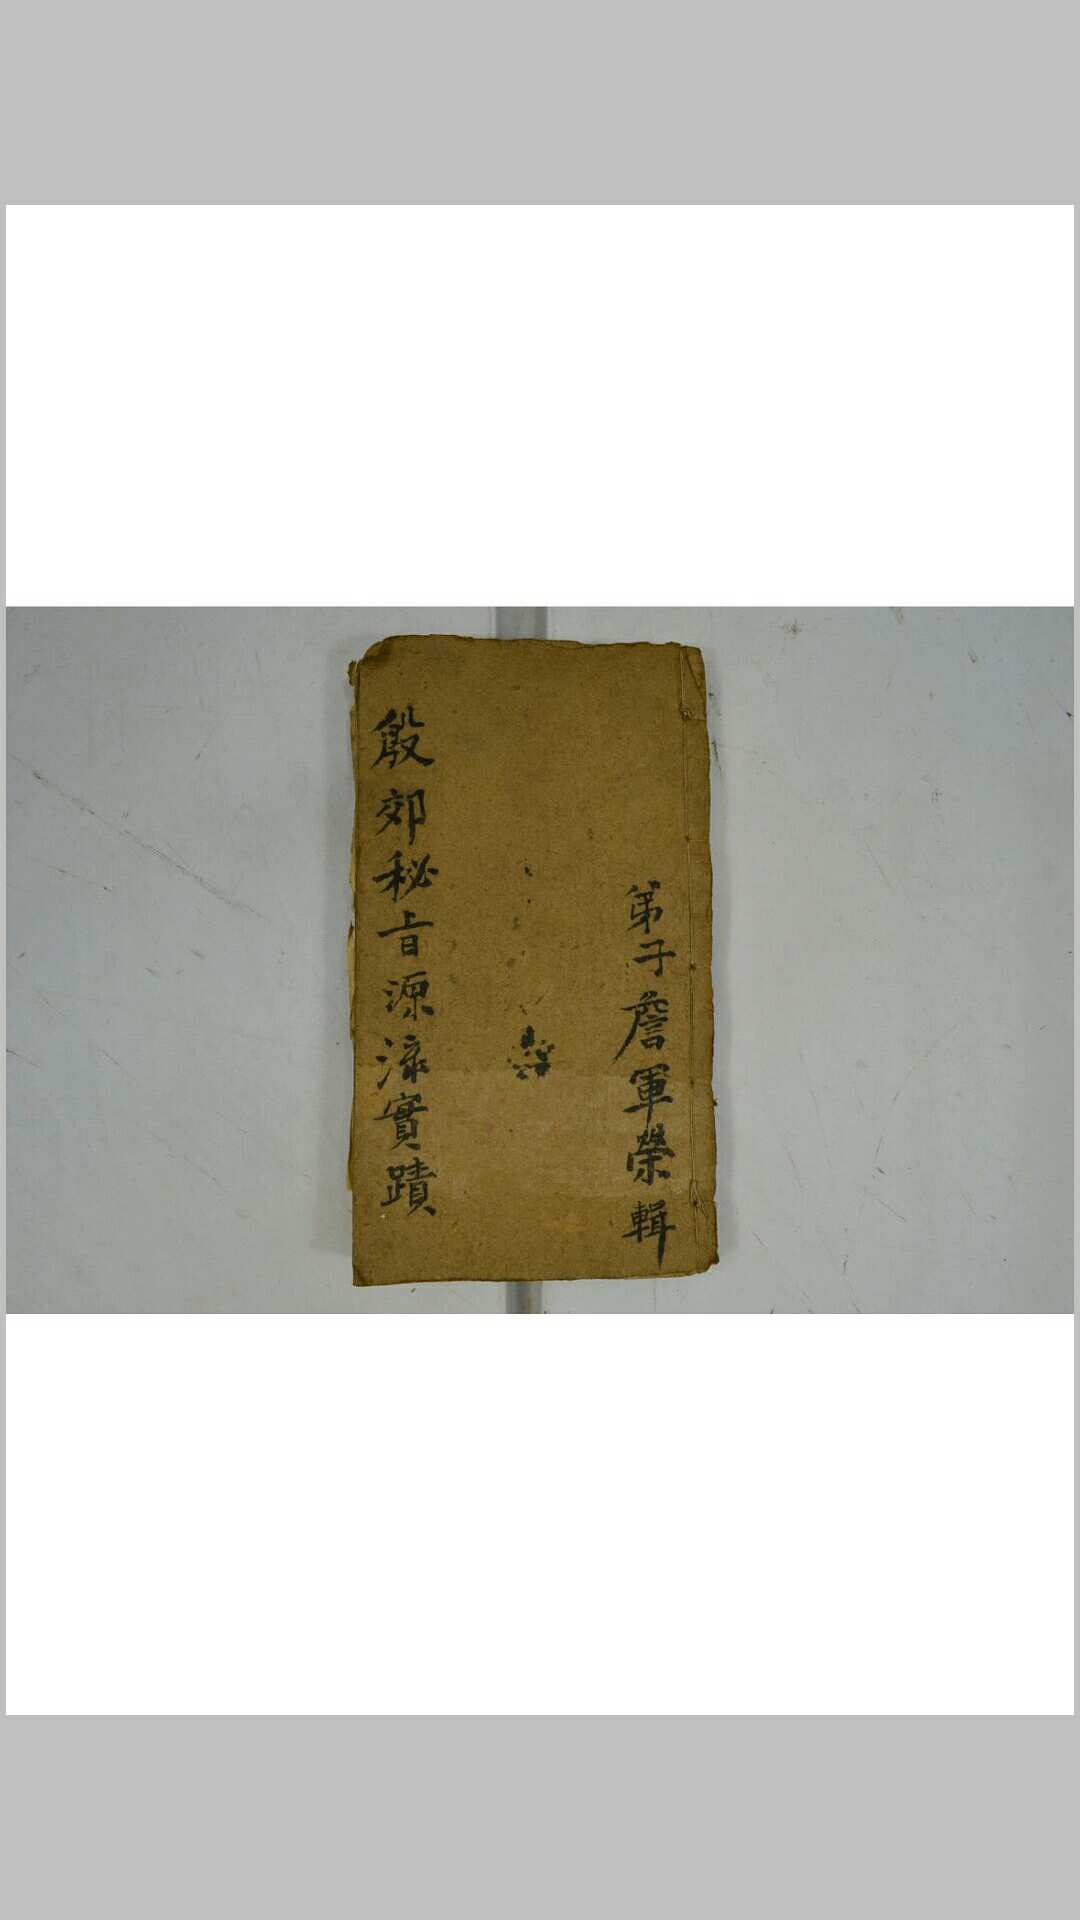 弟子詹軍榮輯
殷郊秘旨源流實蹟